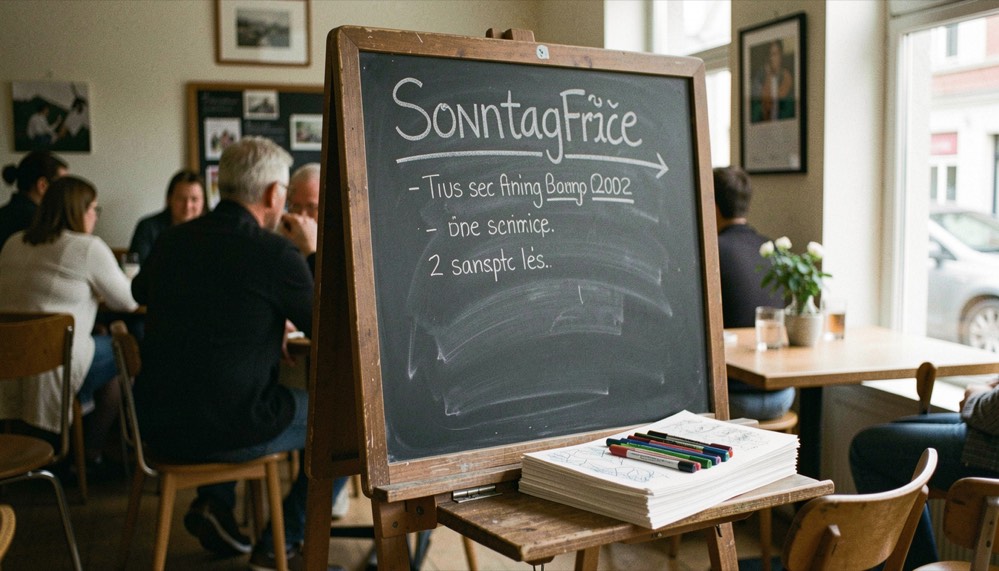 SonntagFrĩc̆e
-Tıus sec Aning Bomp (2002
- öne scrimice.
2 sansptc lés..